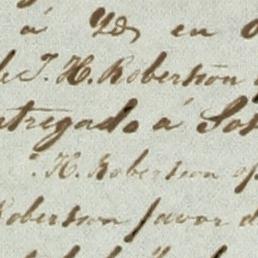 á Yd en
T. H. Roberson
ntregado á Sos
H. Roberson
Roberson favor d